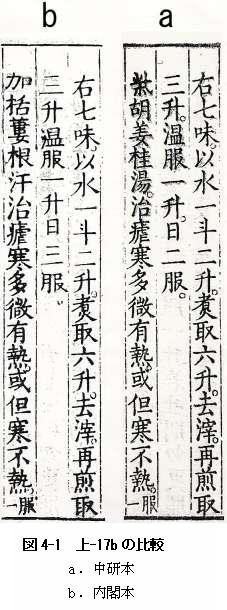 b
a
右七味。以水一斗二升。煮取六升。去滓。再煎取
三升。温服一升。日二服。
柴胡姜桂湯。治瘧寒多微有熱。或但寒不熱。一服
右七味。以水一斗二升。煮取六升。去滓。再煎取
三升温服一升日三服。
加栝蔞根汗治瘧寒多微有熱。或但寒不熱。一服
図4-1 上-17bの比較
a. 中研本
b. 内閣本